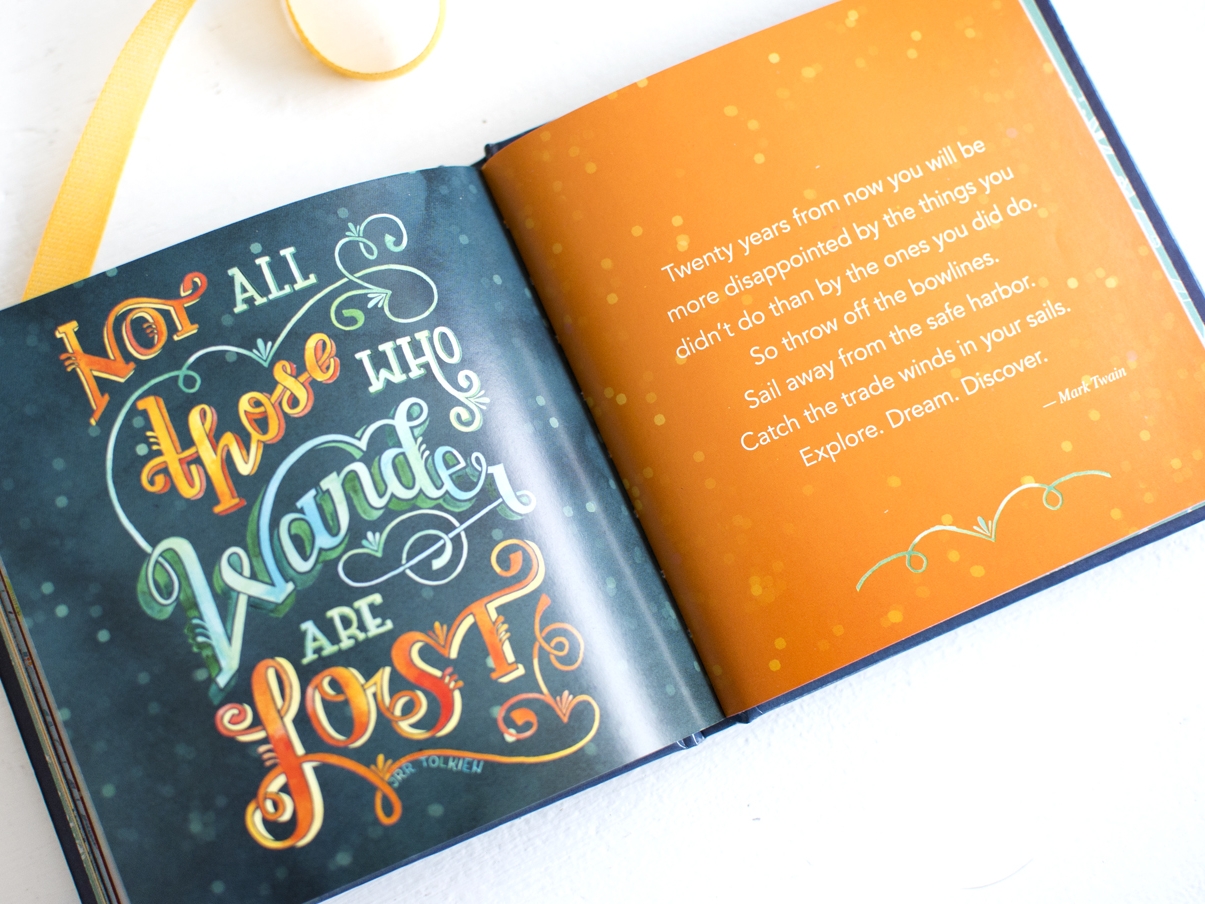 NOT ALL
those WHO
Wander
ARE
LOST
JRR TOLKIEN
Twenty years from now you will be
more disappointed by the things you
didn't do than by the ones you did do.
So throw off the bowlines.
Sail away from the safe harbor.
Catch the trade winds in your sails.
Explore. Dream. Discover.
— Mark Twain